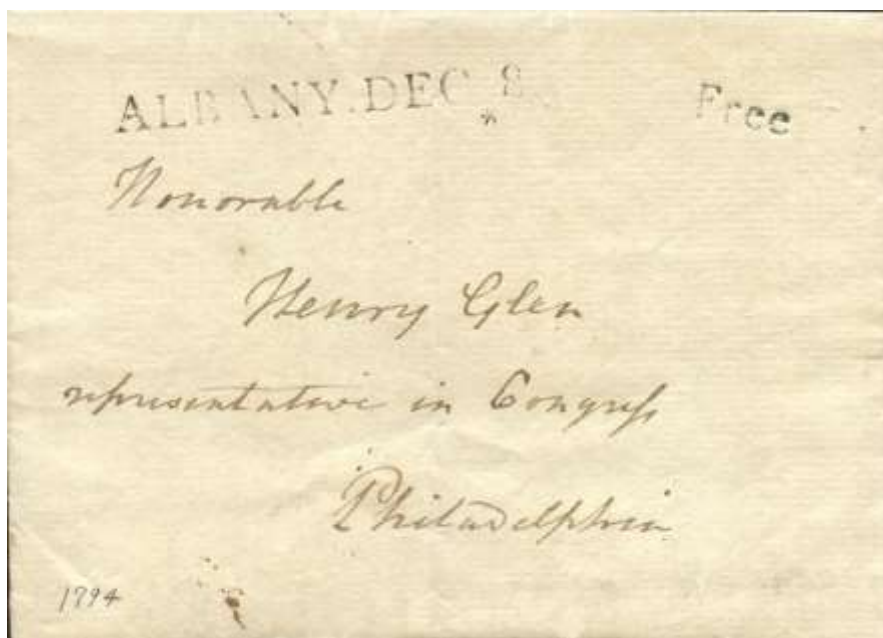 ALBANY.DEC 8 * Free
Honorable
Henry Glen
representative in Congreſs
Philadelphia
1794